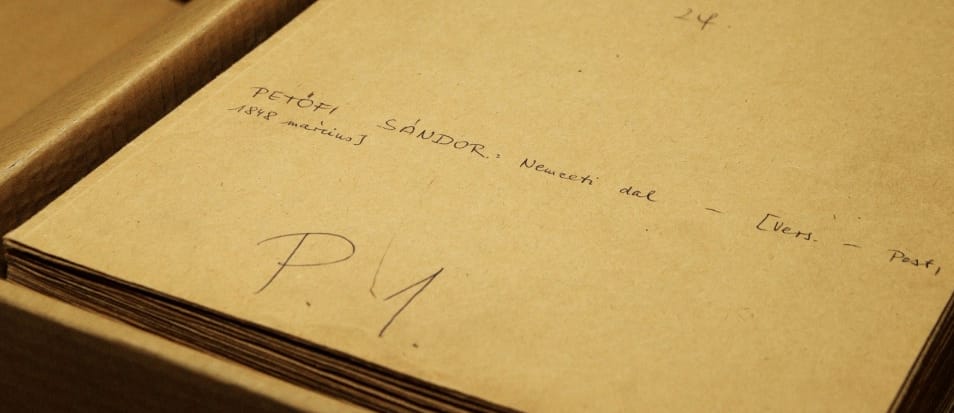 24.
PETŐFI SÁNDOR: Nemzeti dal – [Vers. – Pest,
1848 március]
P. 4.